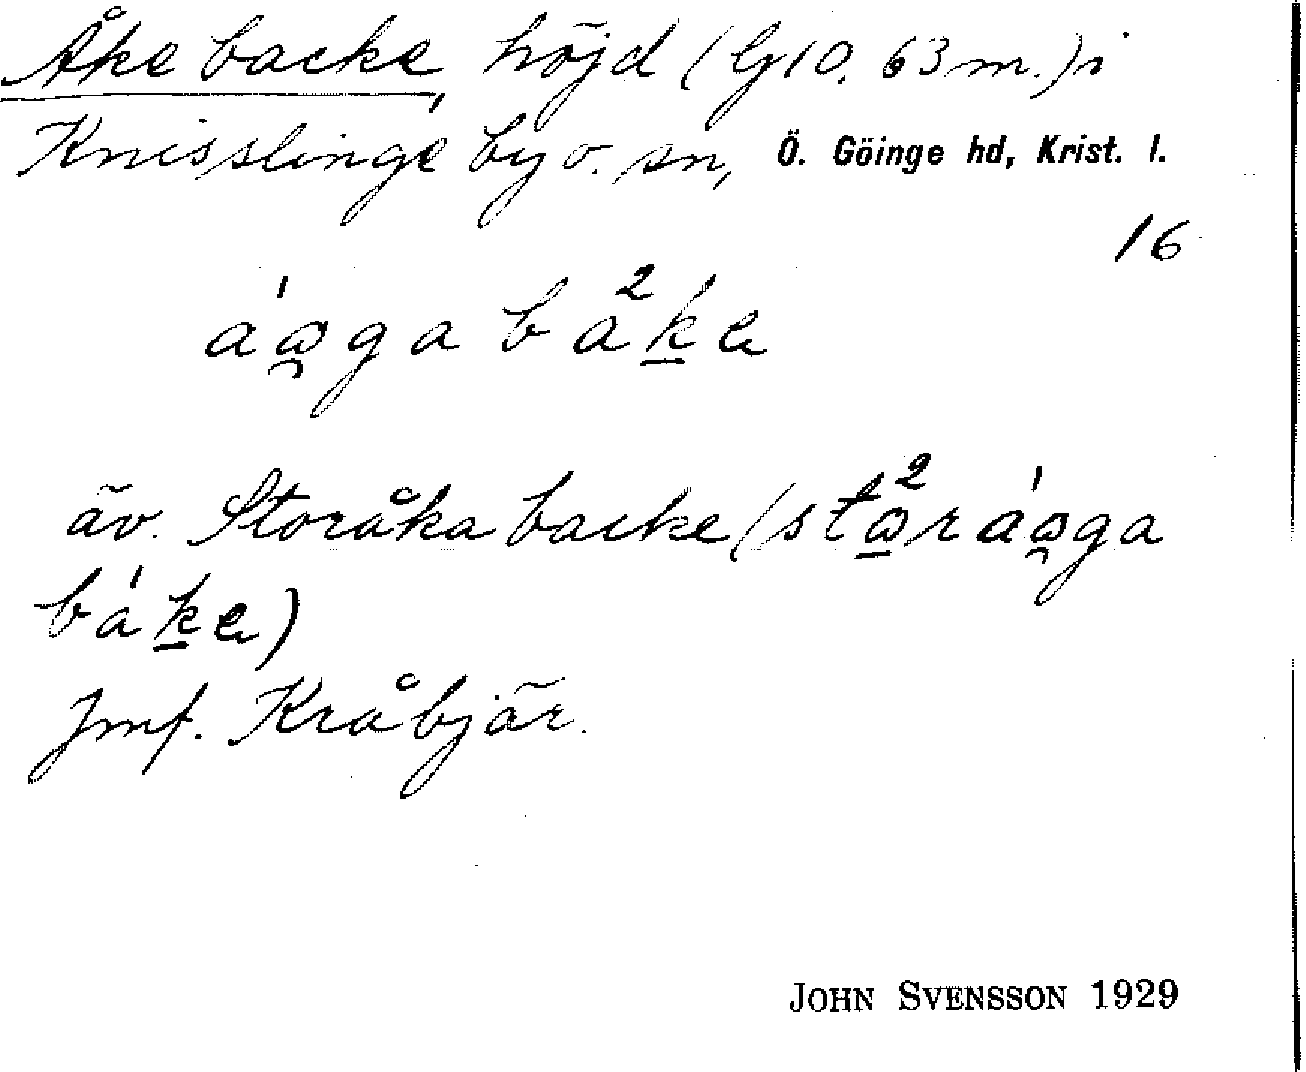 Åke backe, höjd (G10. 63 m.) i
Knisslinge by o. sn, Ö. Göinge hd, Krist. l.
16
áa̯ga báke
äv. Storåka backe (stara̯ga
báke)
Jmf. Kråbjär.
JOHN SVENSSON 1929